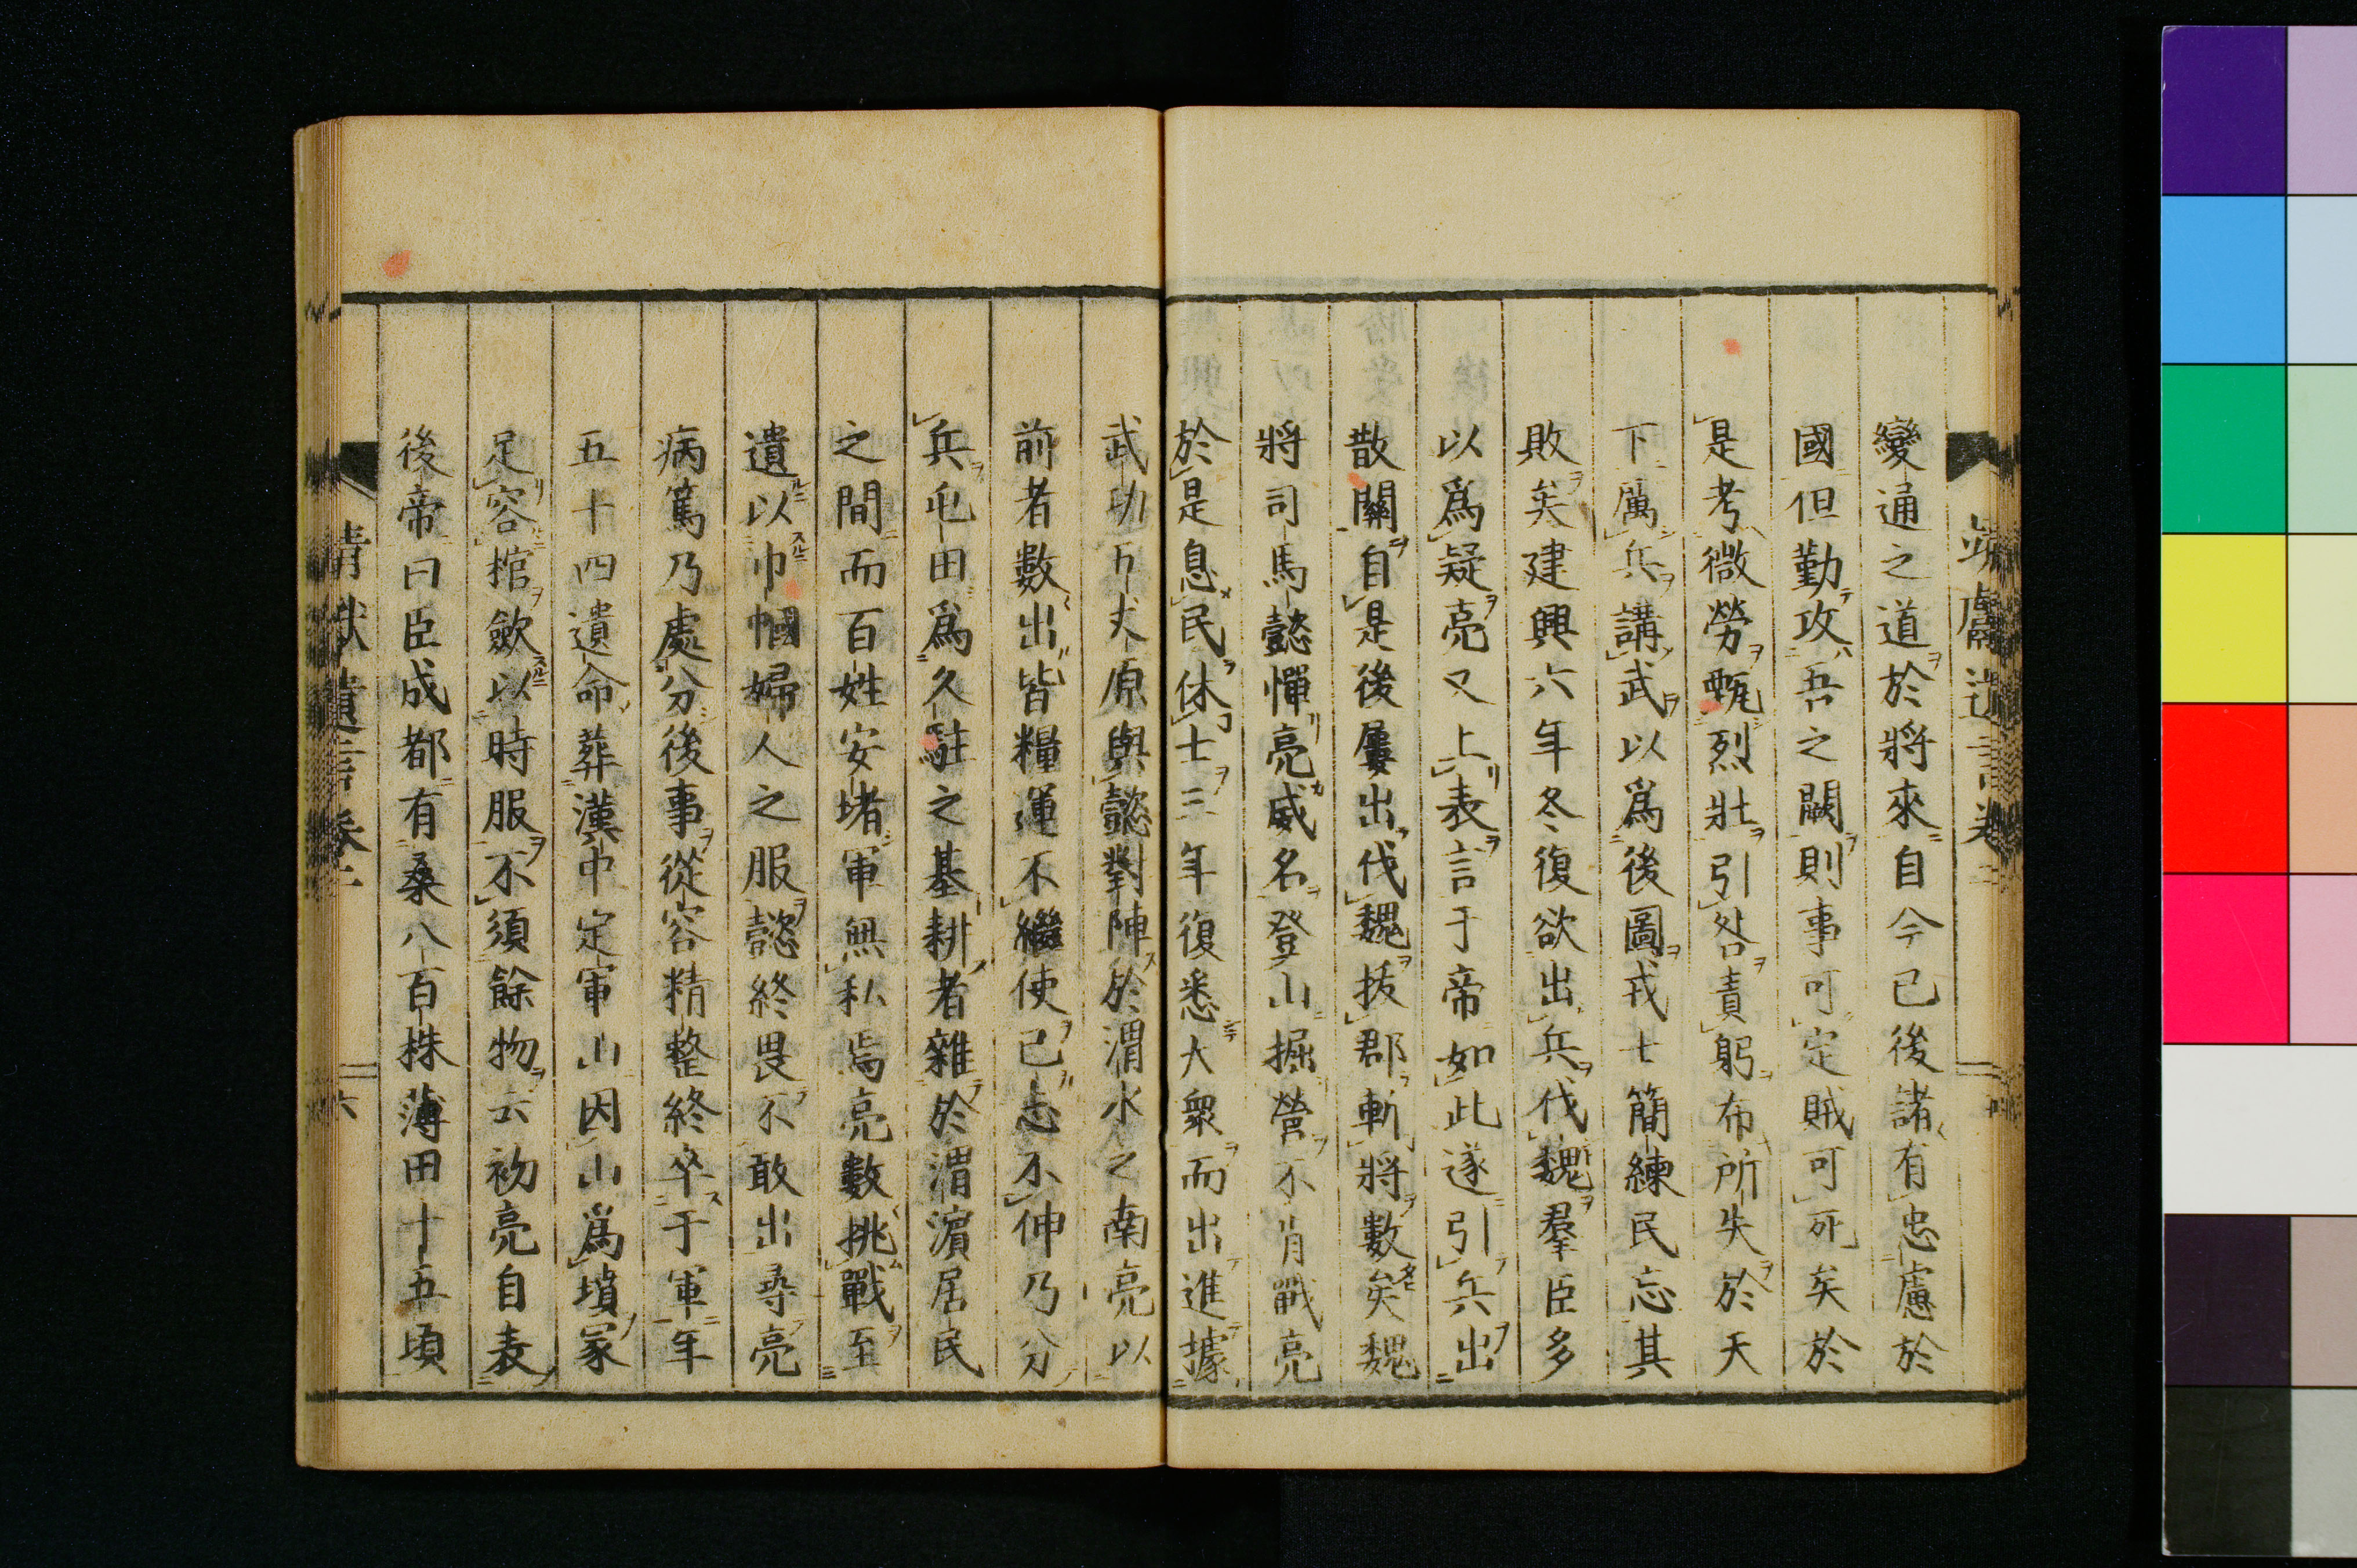 變通之道於將來自今已後諸有忠慮於
國但勤攻吾之闕則事可定賊可死矣於
是考微勞甄烈壯引咎責躬布所失於天
下厲兵講武以爲後圖戎士簡練民忘其
敗矣建興六年冬復欲出兵伐魏羣臣多
以爲疑亮又上表言于帝如此遂引兵出
散關自是後屢出伐魏拔郡斬將數矣魏
將司馬懿憚亮威名登山掘營不肯戰亮
於是息民休士三年復悉大衆而出進據
武功五丈原與懿對陣於渭水之南亮以
前者數出皆糧運不繼使已志不伸乃分
兵屯田爲久駐之基耕者雜於渭濱居民
之間而百姓安堵軍無私焉亮數挑戰至
遺以巾幗婦人之服懿終畏不敢出尋亮
病篤乃處分後事從容精整終卒于軍年
五十四遺命葬漢中定軍山因山爲墳冢
足容棺歛以時服不須餘物云初亮自表
後帝曰臣成都有桑八百株薄田十五頃
靖獻遺言卷二 六